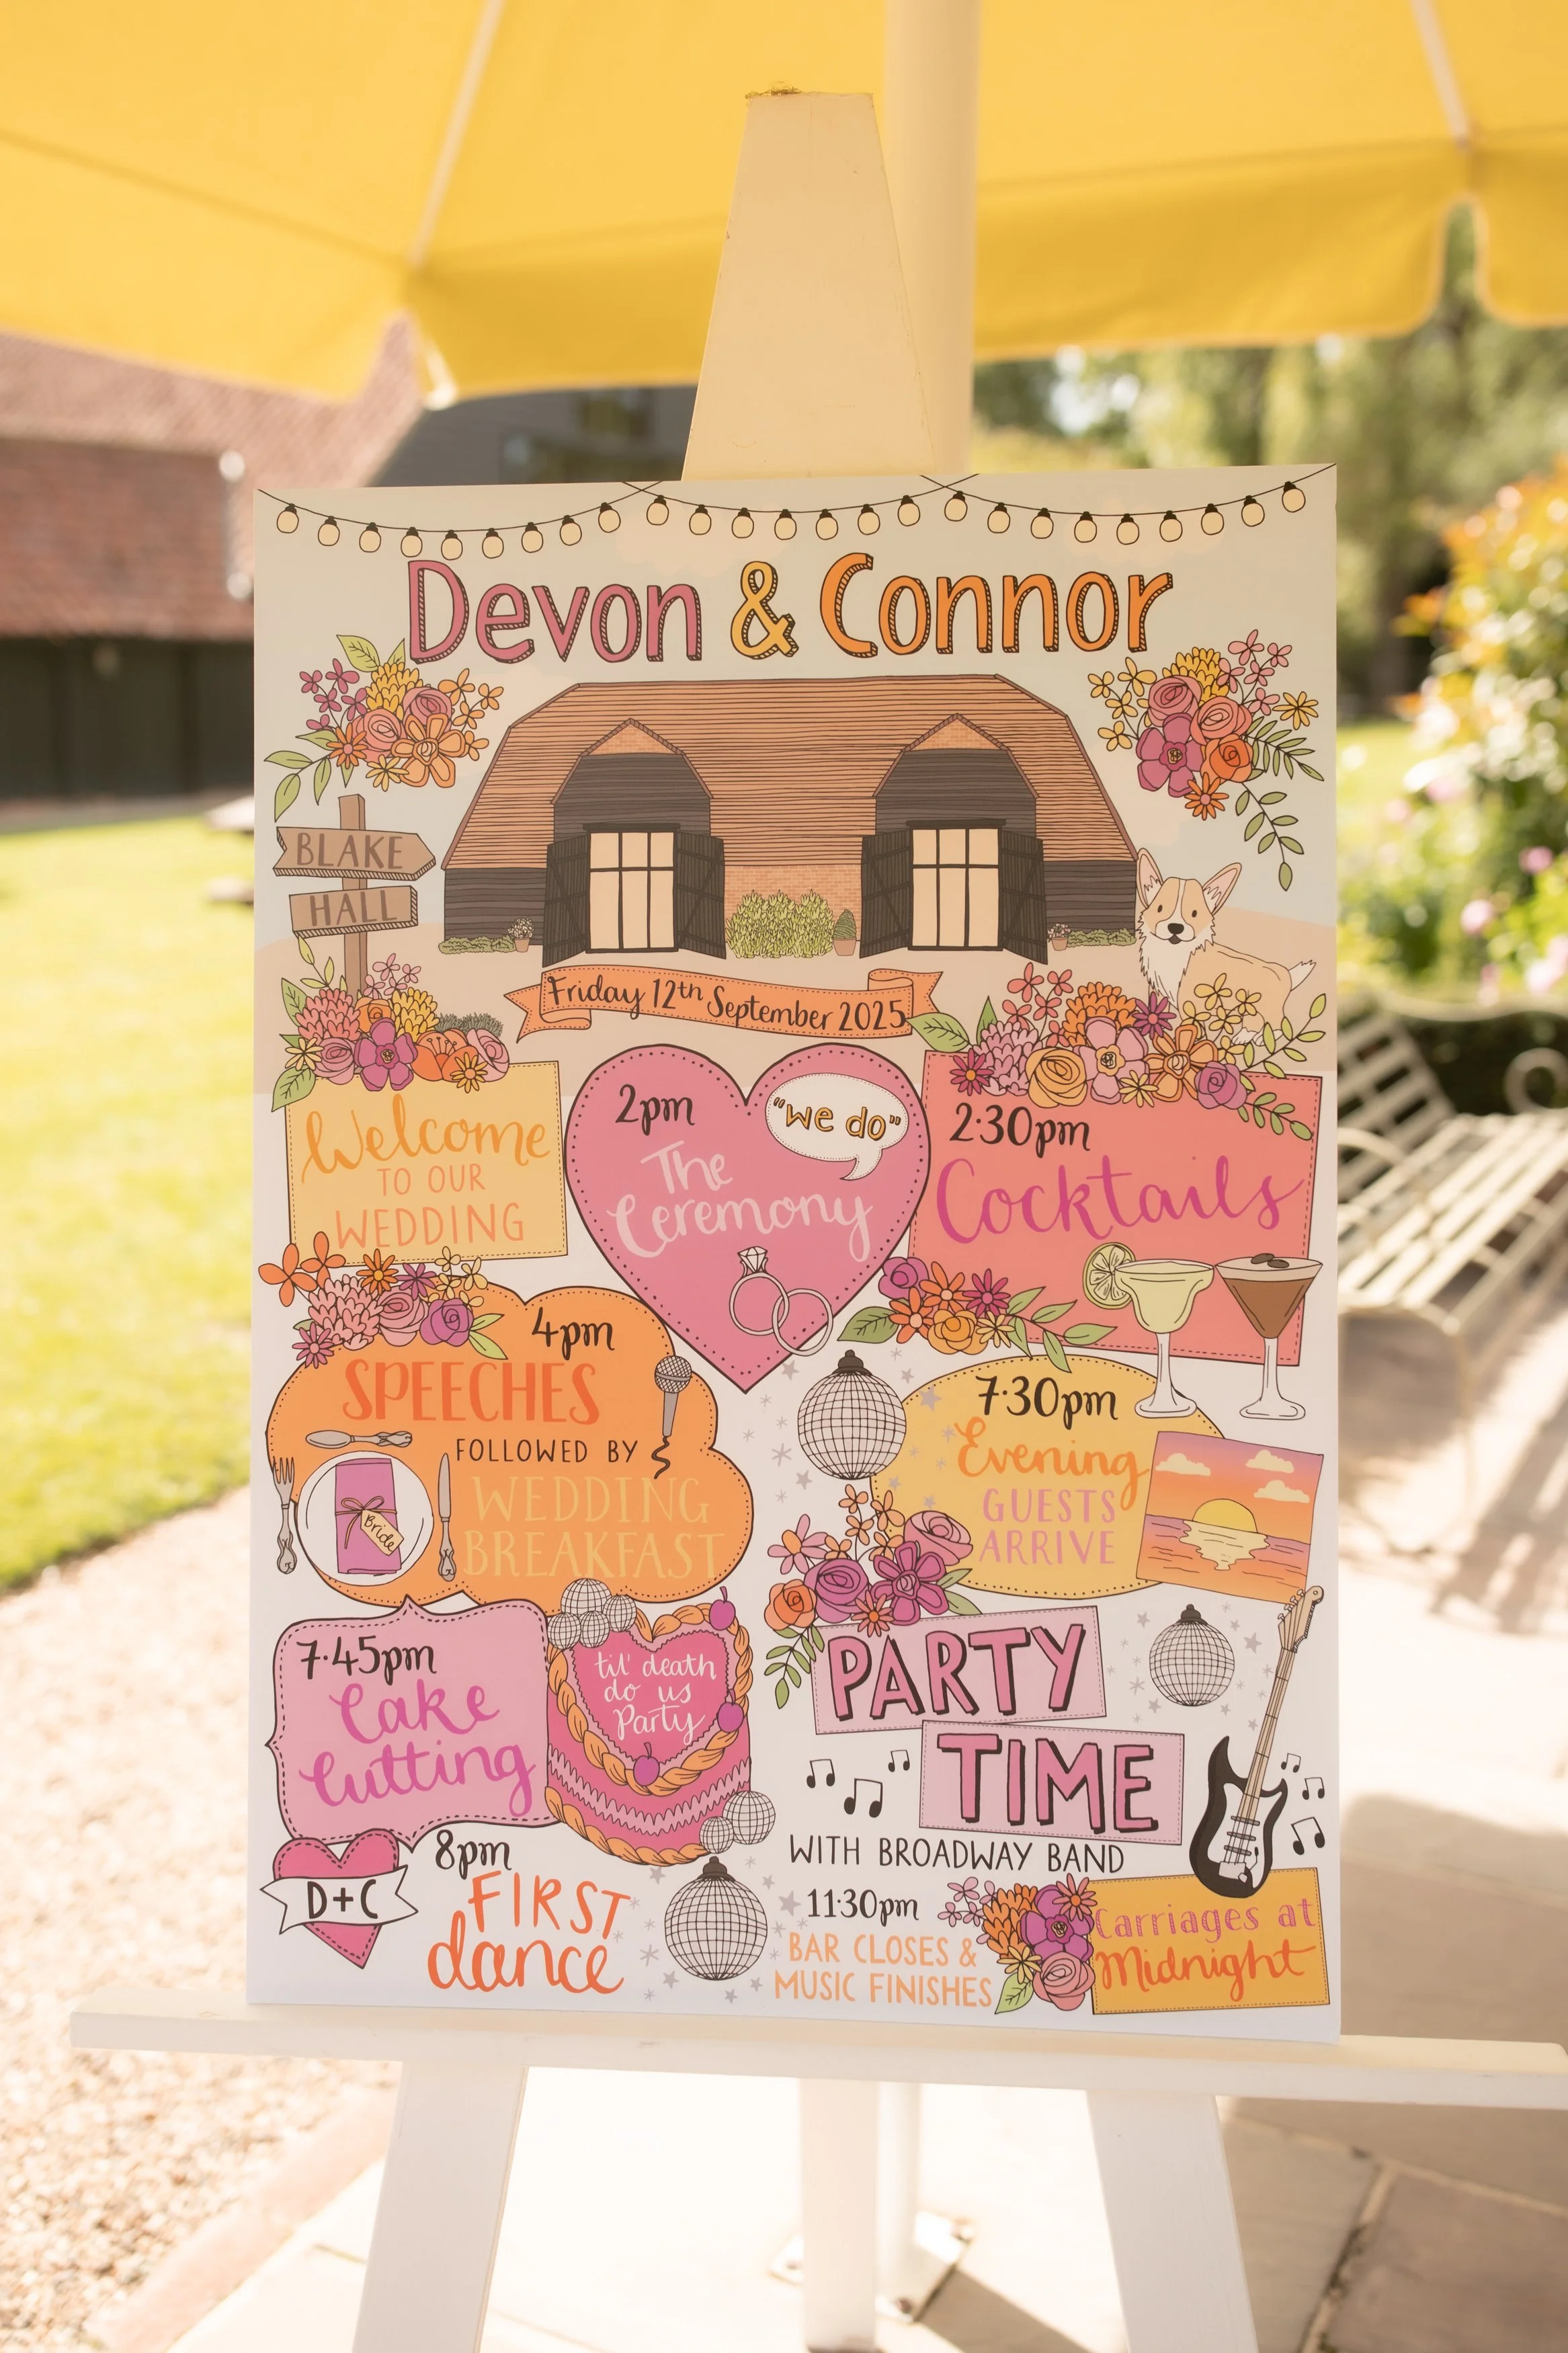 Devon & Connor
BLAKE
HALL
Friday 12th September 2025
Welcome
TO OUR
WEDDING
2pm
"we do"
The
Ceremony
2.30pm
Cocktails
4pm
SPEECHES
FOLLOWED BY
WEDDING
BREAKFAST
Bride
7.30pm
Evening
GUESTS
ARRIVE
7.45pm
Cake
Cutting
til' death
do us
Party
PARTY
TIME
WITH BROADWAY BAND
D+C
8pm
FIRST
dance
11:30pm
BAR CLOSES &
MUSIC FINISHES
Carriages at
Midnight